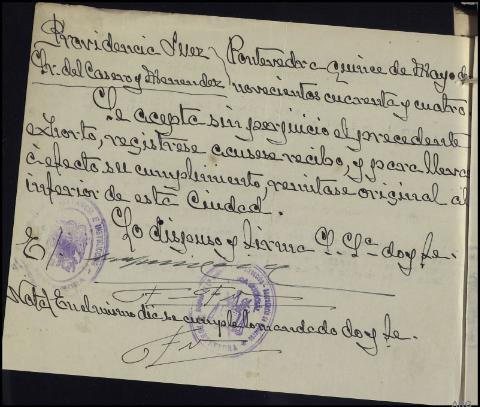 Providencia Juez } Pontevedra quince de Mayo de
Sr. del Casero y Menendez } novecientos cuarenta y cuatro
Se acepta sin perjuicio el precedente
exhorto, registrese acusese recibo, y para llevar
a efecto su cumplimiento, remitase original al
inferior de esta Ciudad.
Lo dispuso y firma S. Sª doy fe.
E/.
Nota/ En el mismo dia se cumple lo mandado doy fe.